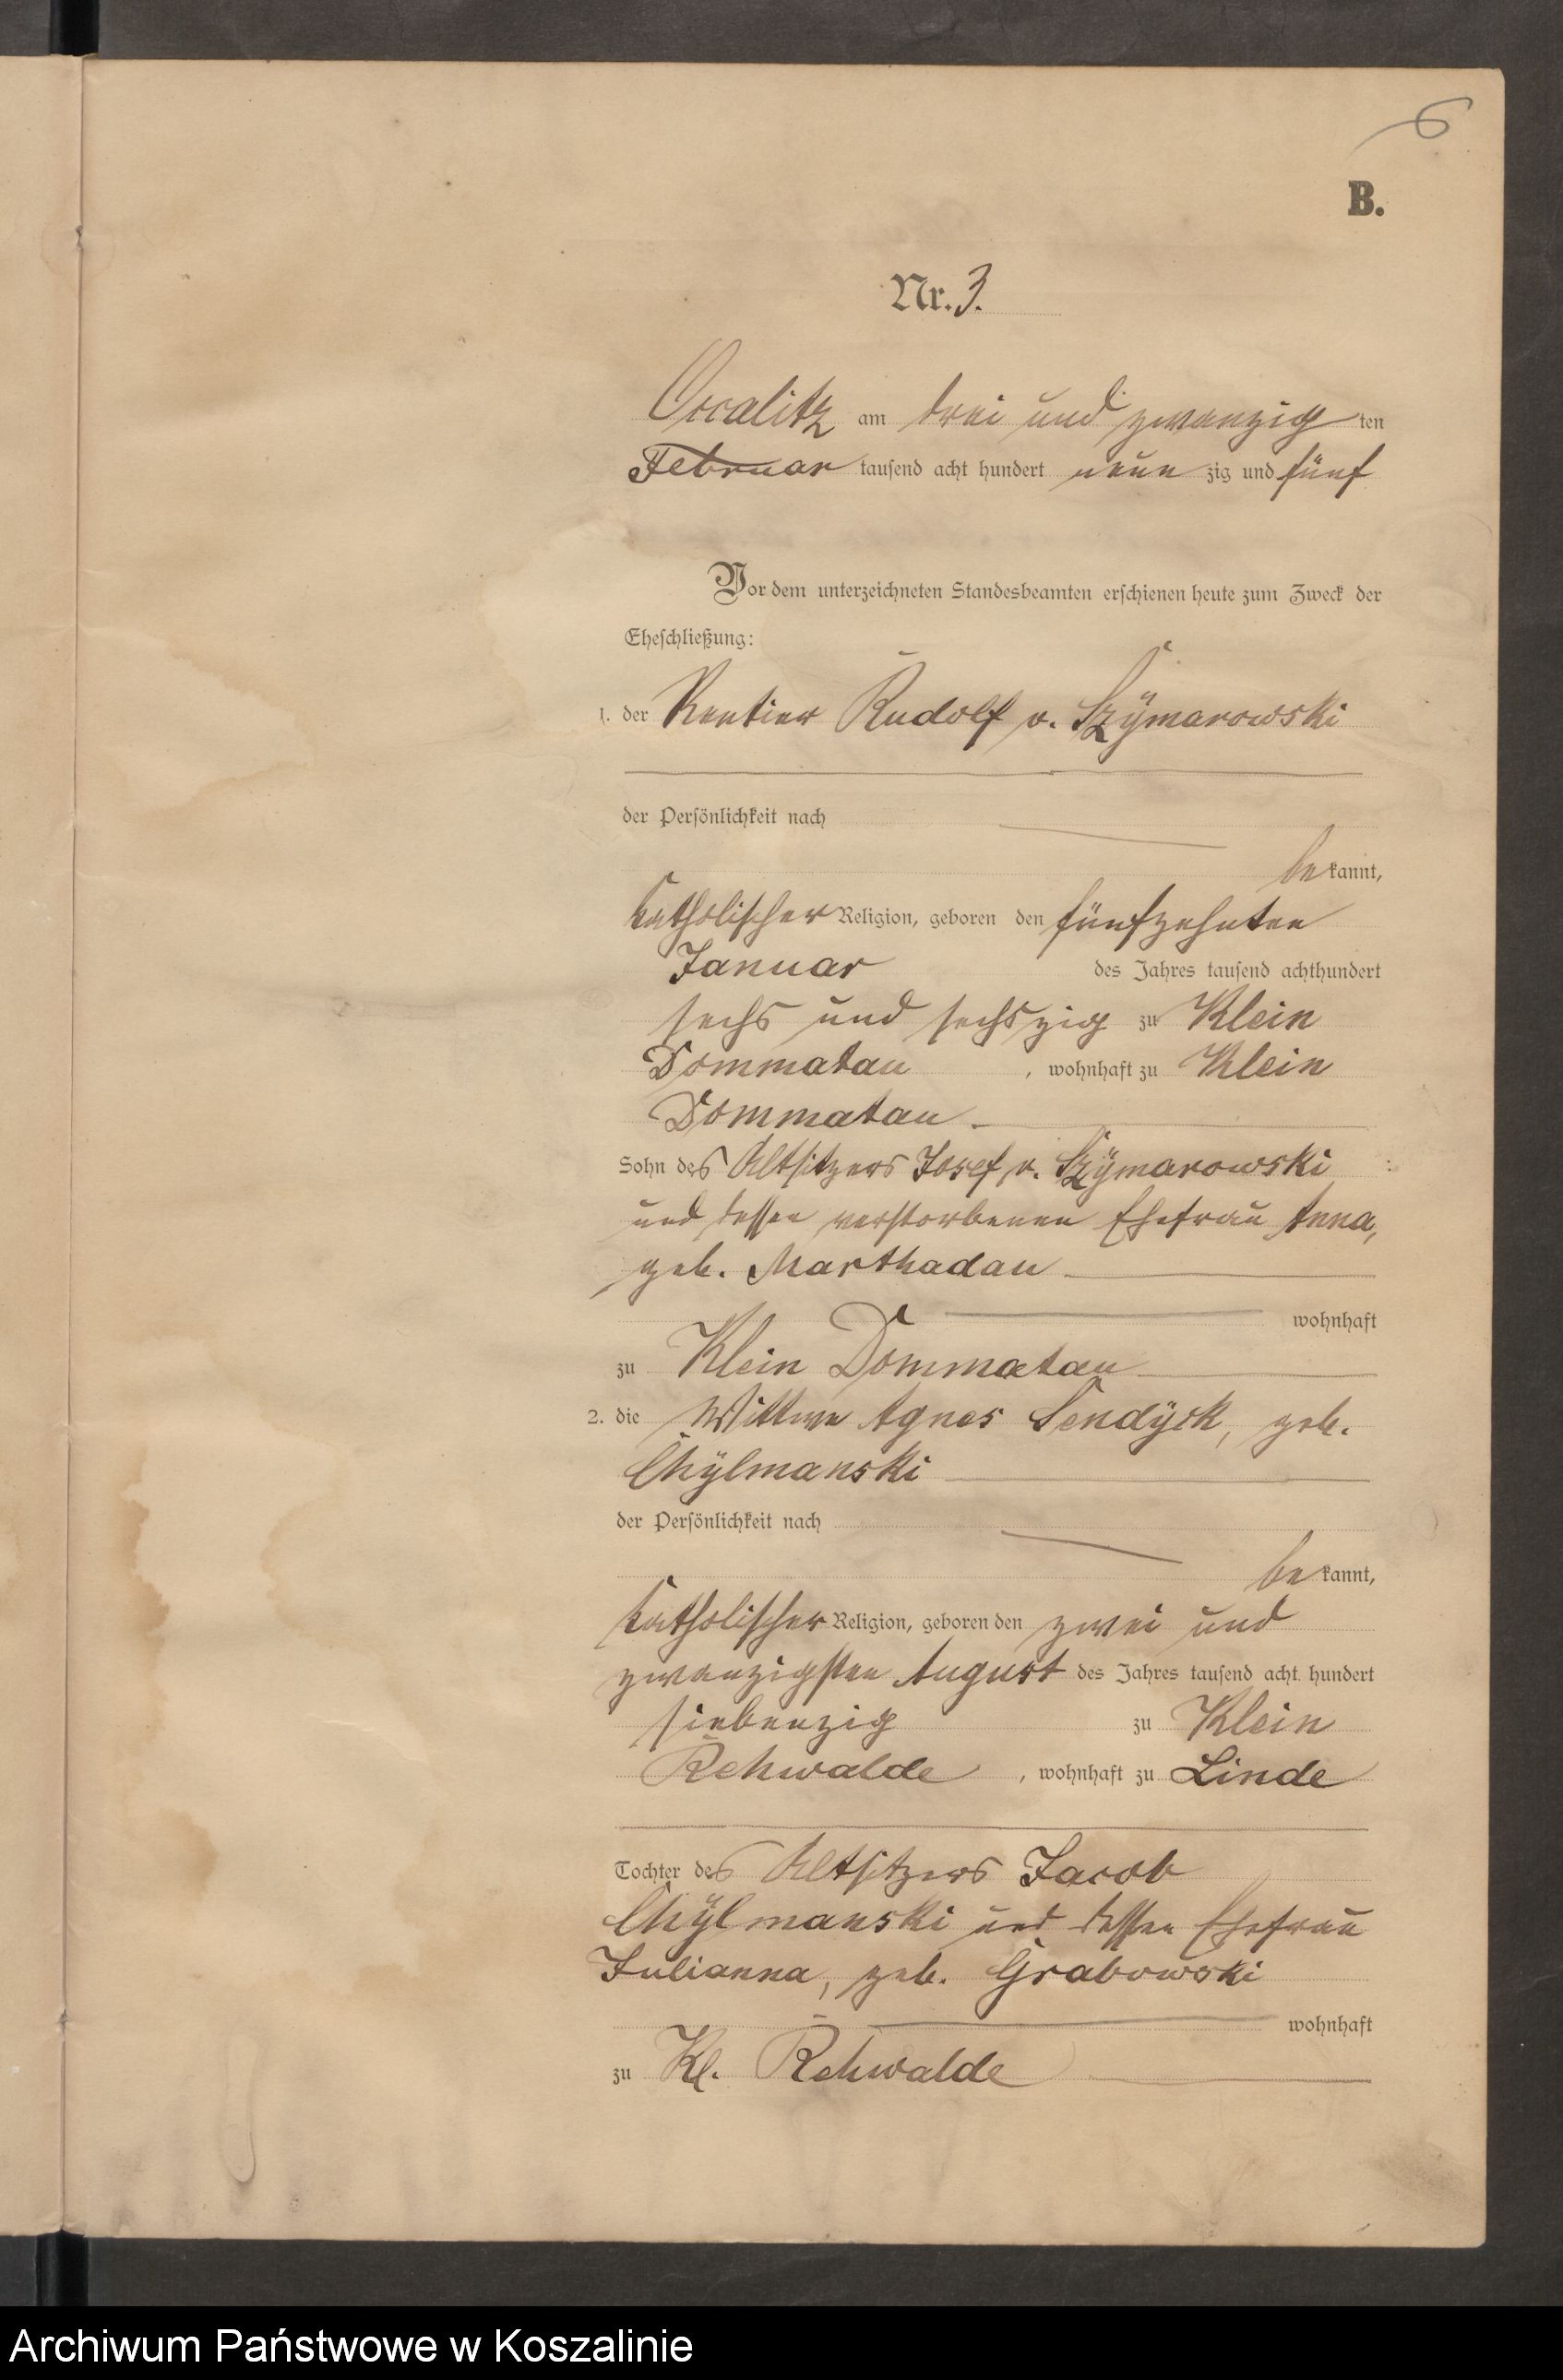 6
B.
Nr. 3.
Occalitz am drei und zwanzig ten
Februar tausend acht hundert neun zig und fünf
Vor dem unterzeichneten Standesbeamten erschienen heute zum Zweck der
Eheschließung:
1. der Rentier Rudolf v. Szÿmarowski
der Persönlichkeit nach
be kannt,
katholischer Religion, geboren den fünfzehnten
Januar des Jahres tausend achthundert
sechs und sechszig zu Klein
Dommatau , wohnhaft zu Klein
Dommatau
Sohn des Altsitzers Josef v. Szÿmarowski
und dessen verstorbenen Ehefrau Anna,
geb. Marthadau
wohnhaft
zu Klein Dommatau
2. die Wittwe Agnes Sendÿck, geb.
Chÿlmanski
der Persönlichkeit nach
be kannt,
katholischer Religion, geboren den zwei und
zwanzigsten August des Jahres tausend acht hundert
siebenzig zu Klein
Rehwalde , wohnhaft zu Linde
Tochter des Altsitzers Jacob
Chÿlmanski und dessen Ehefrau
Julianna, geb. Grabowski
wohnhaft
zu Kl. Rehwalde
Archiwum Państwowe w Koszalinie